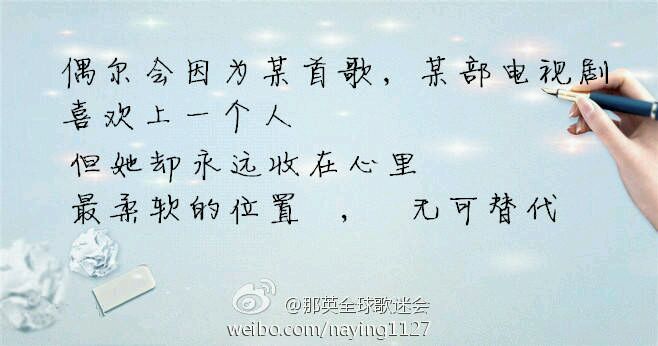 偶尔会因为某首歌，某部电视剧
喜欢上一个人
但她却永远收在心里
最柔软的位置 ， 无可替代
@那英全球歌迷会
weibo.com/naying1127